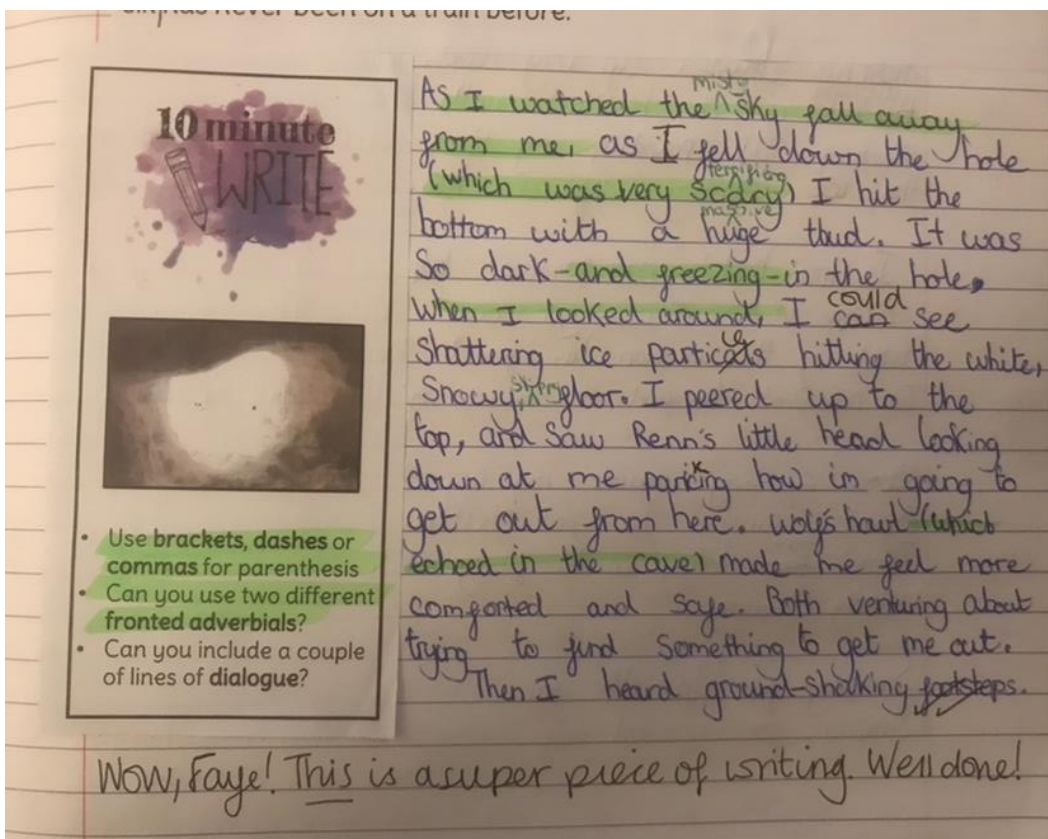 has never been on a train before.
10 minute
WRITE
• Use brackets, dashes or
commas for parenthesis
• Can you use two different
fronted adverbials?
• Can you include a couple
of lines of dialogue?
misty
As I watched the ^ sky fall away
from me, as I fell down the hole
terrifying
(which was very scary) I hit the
massive
bottom with a huge thud. It was
So dark-and freezing-in the hole,
could
When I looked around, I can see
Shattering ice particles hitting the white,
Snowy, floor. I peered up to the
top, and saw Renn's little head looking
down at me panicking how im going to
get out from here. wolf's howl (which
echoed in the cave) made me feel more
comforted and safe. Both venturing about
trying to find something to get me out.
Then I heard ground-shaking footsteps.
Wow, Faye! This is a super piece of writing. Well done!